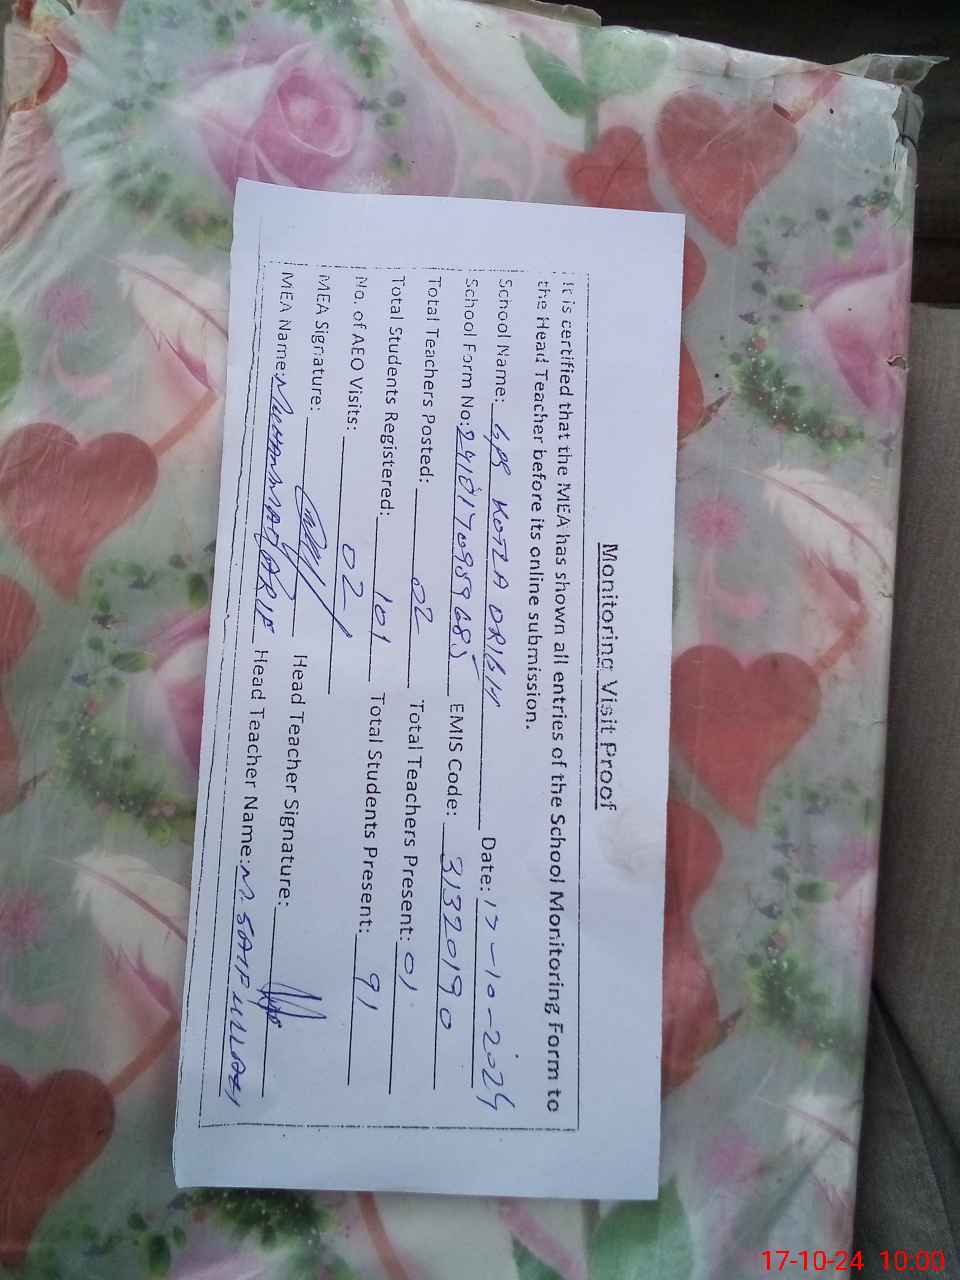 Monitoring Visit Proof
It is certified that the MEA has shown all entries of the School Monitoring Form to
the Head Teacher before its online submission.
School Name: GPS KOTLA DRIBH Date: 17-10-2024
School Form No: EMIS Code: 31320190
Total Teachers Posted: 02 Total Teachers Present: 01
Total Students Registered: 101 Total Students Present: 91
No. of AEO Visits: 02
MEA Signature: Head Teacher Signature:
MEA Name: MUHAMMAD ARIF Head Teacher Name: M. SAIF ULLAH
17-10-24 10:00